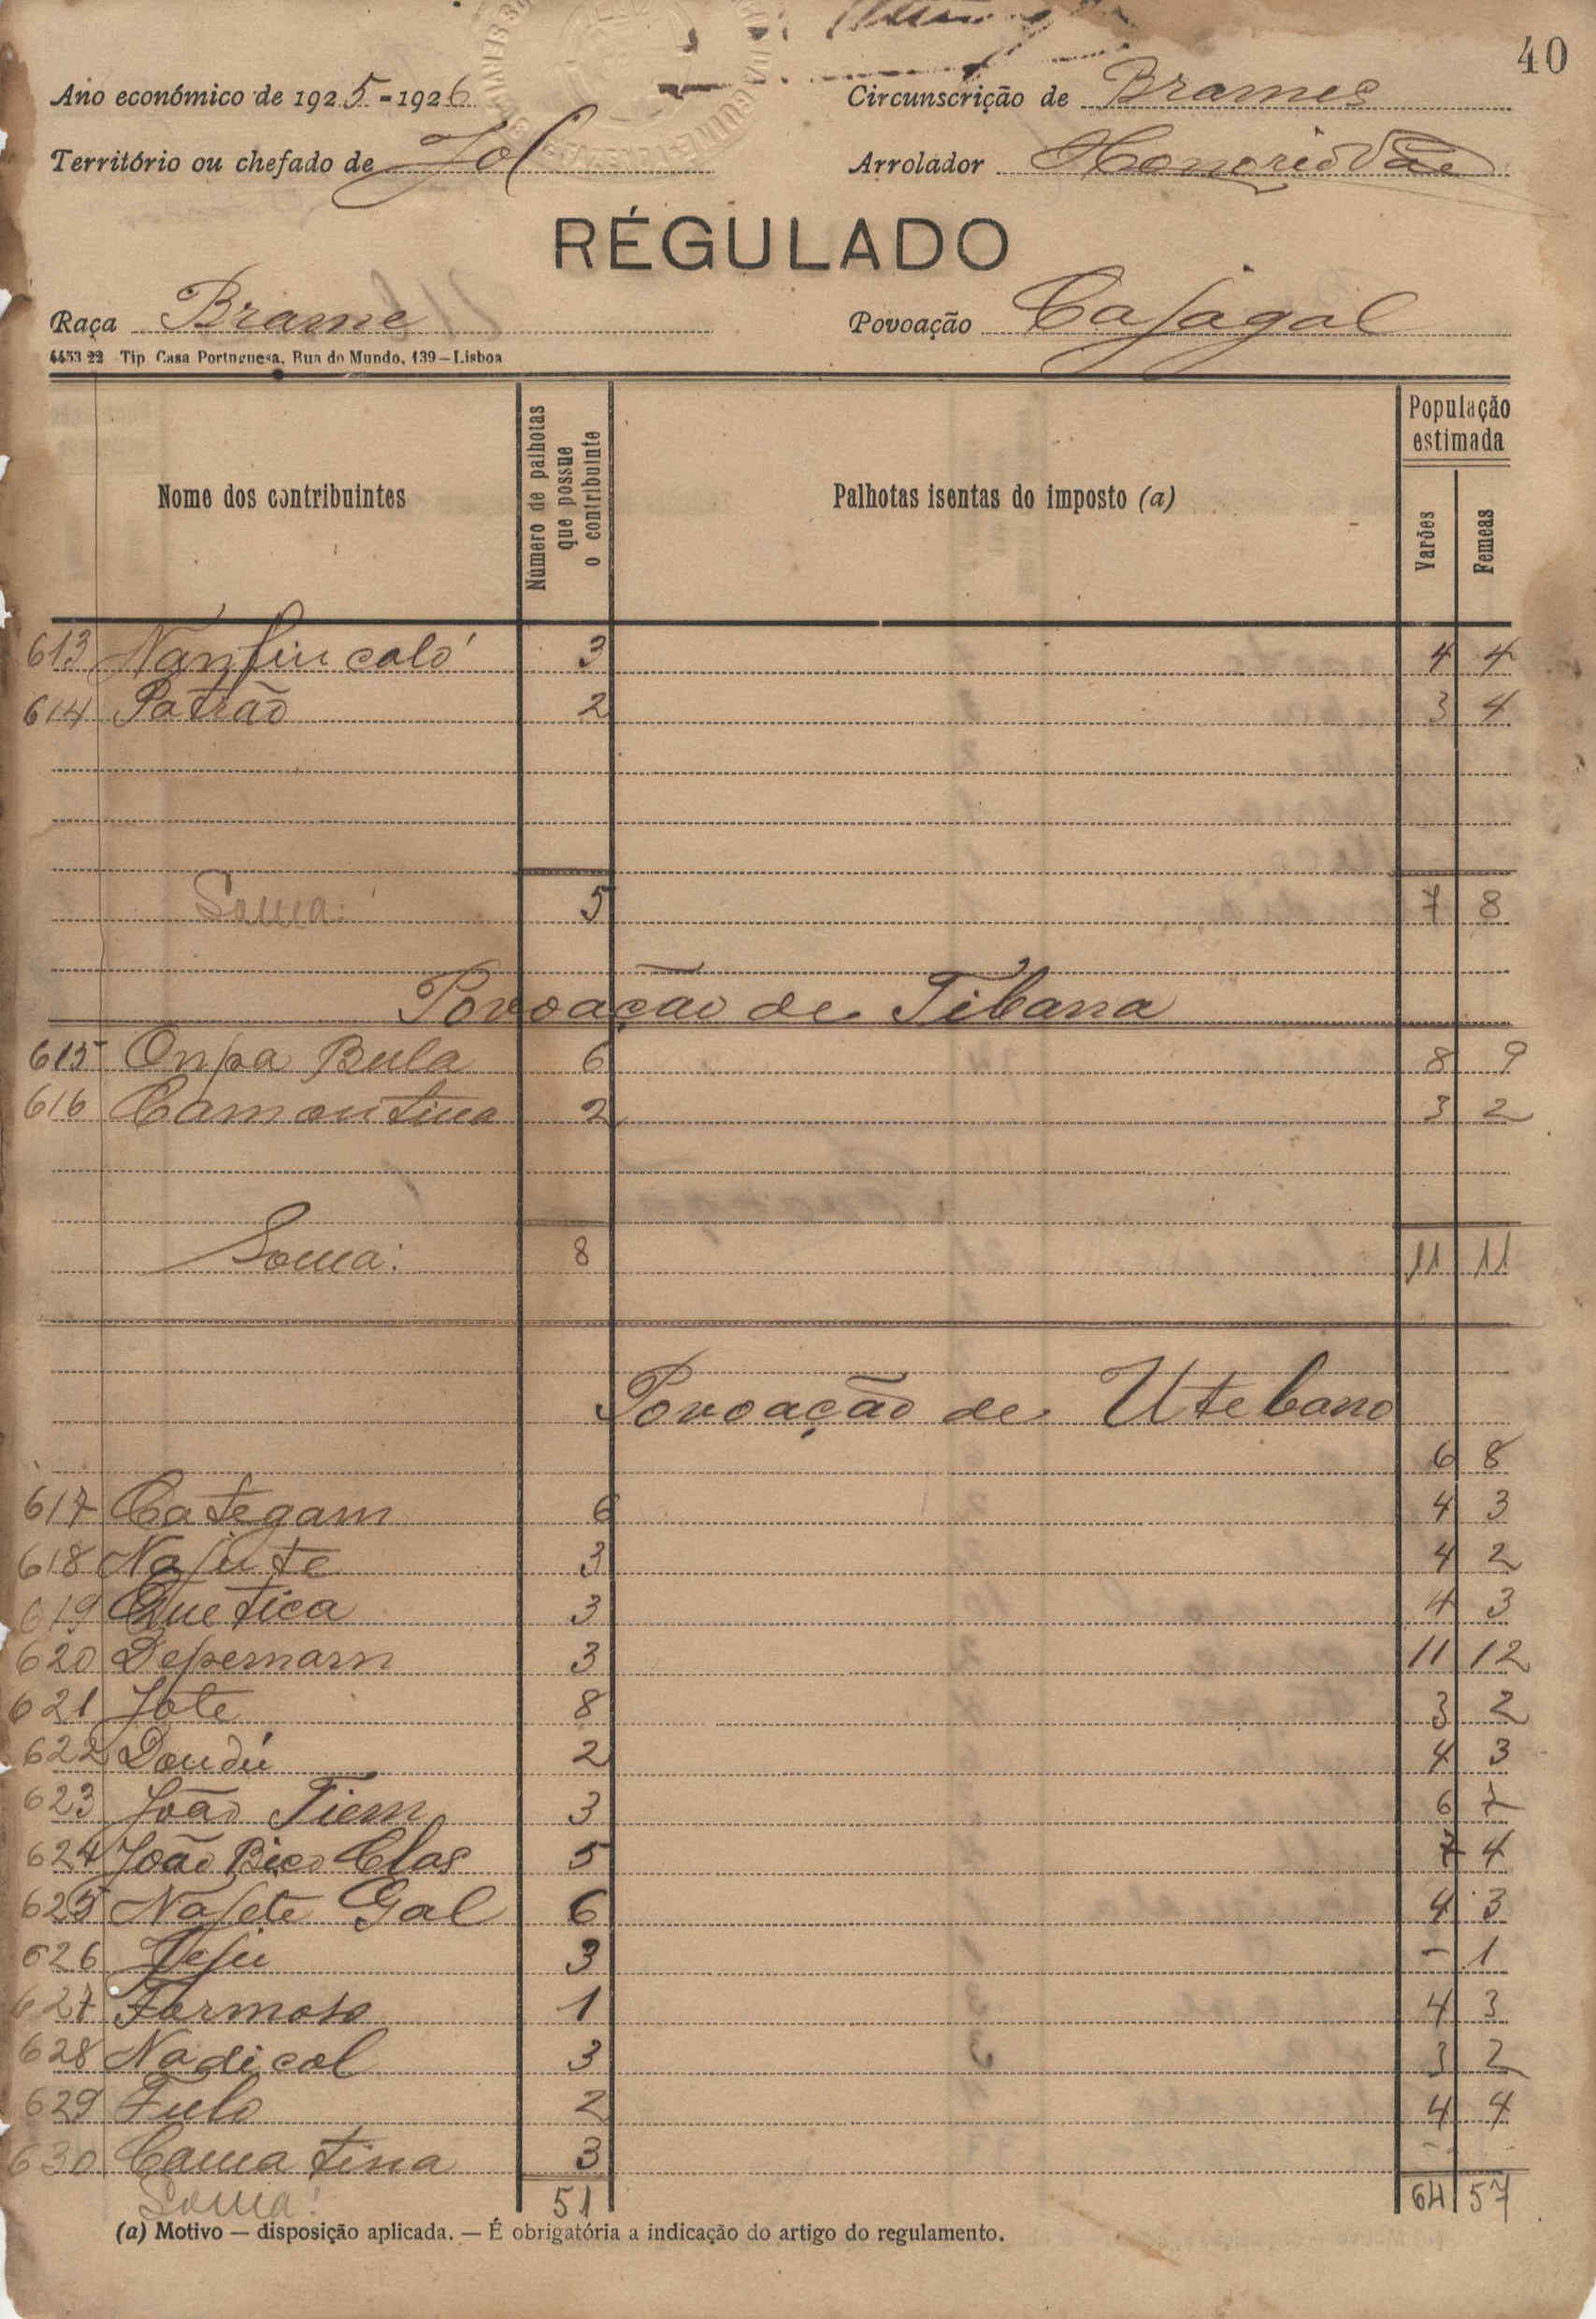 40
Ano económico de 1925-1926
Circunscrição de Brames
Território ou chefado de Jol
Arrolador Honorio Vãe
RÉGULADO
Raça Brame
Povoação Cafagal
4453 22 Tip Casa Portuguesa, Rua do Mundo, 139—Lisboa
Nome dos contribuintes
Número de palhotas que possue o contribuinte
Palhotas isentas do imposto (a)
População estimada
Varões
Femeas
613 Nanfin caló 3 4 4
614 Patrão 2 3 4
Soma: 5 7 8
Povoação de Tibana
615 Onpa Bula 6 8 9
616 Camantina 2 3 2
Soma: 8 11 11
Povoação de Utebano
6 8
617 Categam 6 4 3
618 Nafute 3 4 2
619 Quetica 3 4 3
620 Depemam 3 11 12
621 Jote 8 3 2
622 Dandú 2 4 3
623 João Tiem 3 6 7
624 João Bico Clas 5 7 4
625 Nafete Gal 6 4 3
626 3 - 1
627 Formoso 1 4 3
628 Nadical 3 3 2
629 Fulo 2 4 4
630 Cama tina 3 -
Soma: 51 64 57
(a) Motivo — disposição aplicada. — É obrigatória a indicação do artigo do regulamento.